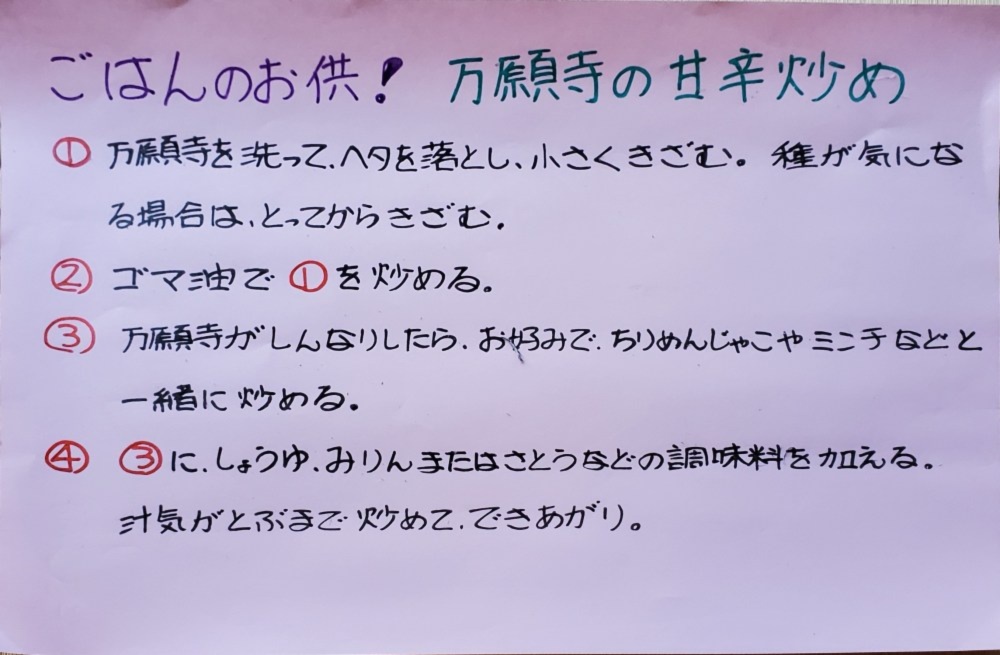 ごはんのお供! 万願寺の甘辛炒め
① 万願寺を洗って、ヘタを落とし、小さくきざむ。種が気にな
る場合は、とってからきざむ。
② ゴマ油で①を炒める。
③ 万願寺がしんなりしたら、お好みで、ちりめんじゃこやミンチなどと
一緒に炒める。
④ ③に、しょうゆ、みりんまたはさとうなどの調味料を加える。
汁気がとぶまで炒めて、できあがり。